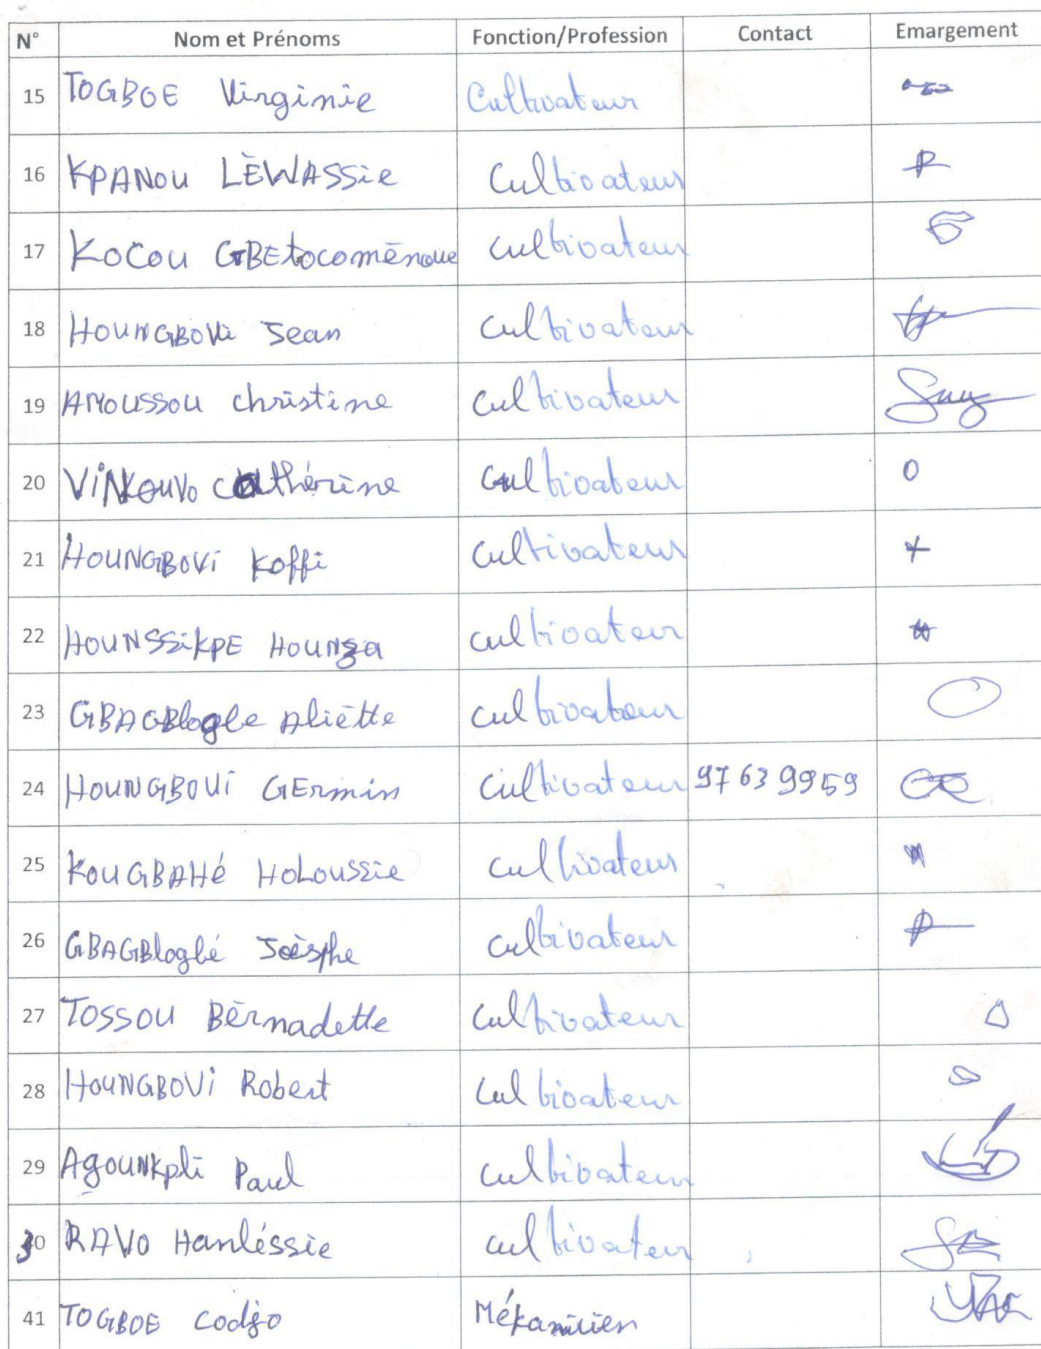 N° Nom et Prénoms Fonction/Profession Contact Emargement
15 TOGBOE Virginie Cultivateur
16 KPANOU LÈWASSie Cultivateur
17 KOCOU GBEtocoménoue cultivateur
18 HOUNGBOVi Jean cultivateur
19 AMOUSSOU christine cultivateur
20 ViNKOUVO cathérine cultivateur
21 HOUNGBOVi Koffi cultivateur
22 HOUNSSiKPE HOUNSa cultivateur
23 GBAGBlogbe Aliètte cultivateur
24 HOUNGBOVi GErmin cultivateur 97 63 99 59
25 KOUGBAHé HOLOUSSie cultivateur
26 GBAGBlogbé Joèsphe cultivateur
27 TOSSOU Bèrnadette cultivateur
28 HOUNGBOVi Robert cultivateur
29 AgOUNKpli Paul cultivateur
30 RAVO Hanléssie cultivateur
41 TOGBOE Codjo Mékanicien